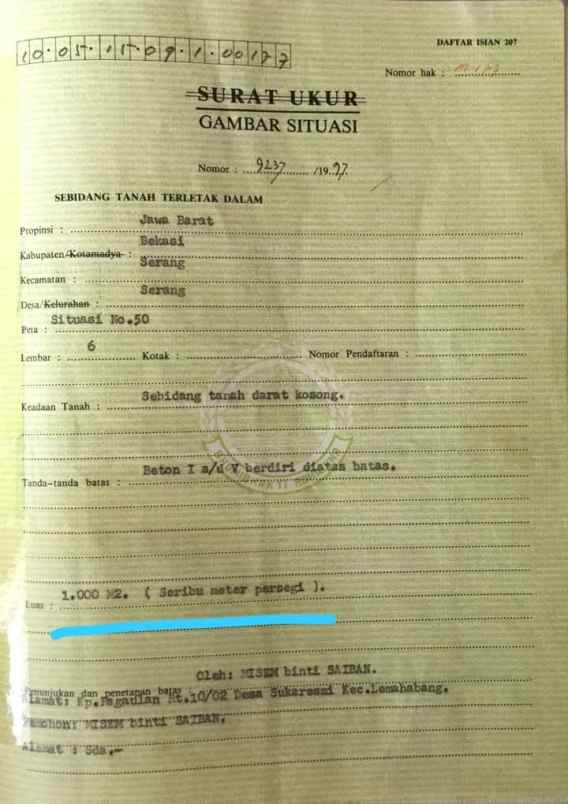 DAFTAR ISIAN 207
10.05.15.09.1.00177
Nomor hak :
SURAT UKUR
GAMBAR SITUASI
Nomor : 9237 /1997.
SEBIDANG TANAH TERLETAK DALAM
Propinsi : Jawa Barat
Kabupaten/Kotamadya : Bekasi
Kecamatan : Serang
Desa/Kelurahan : Serang
Peta : Situasi No.50
Lembar : 6 Kotak : Nomor Pendaftaran :
Keadaan Tanah : Sebidang tanah darat kosong.
Tanda-tanda batas : Beton I s/d V berdiri diatas batas.
Luas : 1.000 M2. ( Seribu meter persegi ).
Oleh: MISEM binti SAIBAN.
Penunjukan dan penetapan batas
Alamat: Kp.Pagaulan Rt.10/02 Desa Sukaresmi Kec.Lemahabang.
Pemohon: MISEM binti SAIBAN.
Alamat : Sda.-